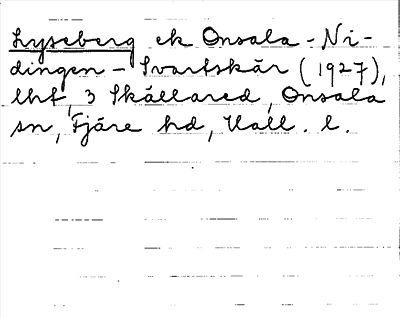 Lyseberg ek Onsala - Ni-
dingen - Svartskär (1927),
lht, 3 Skållared, Onsala
sn, Fjäre hd, Hall. l.